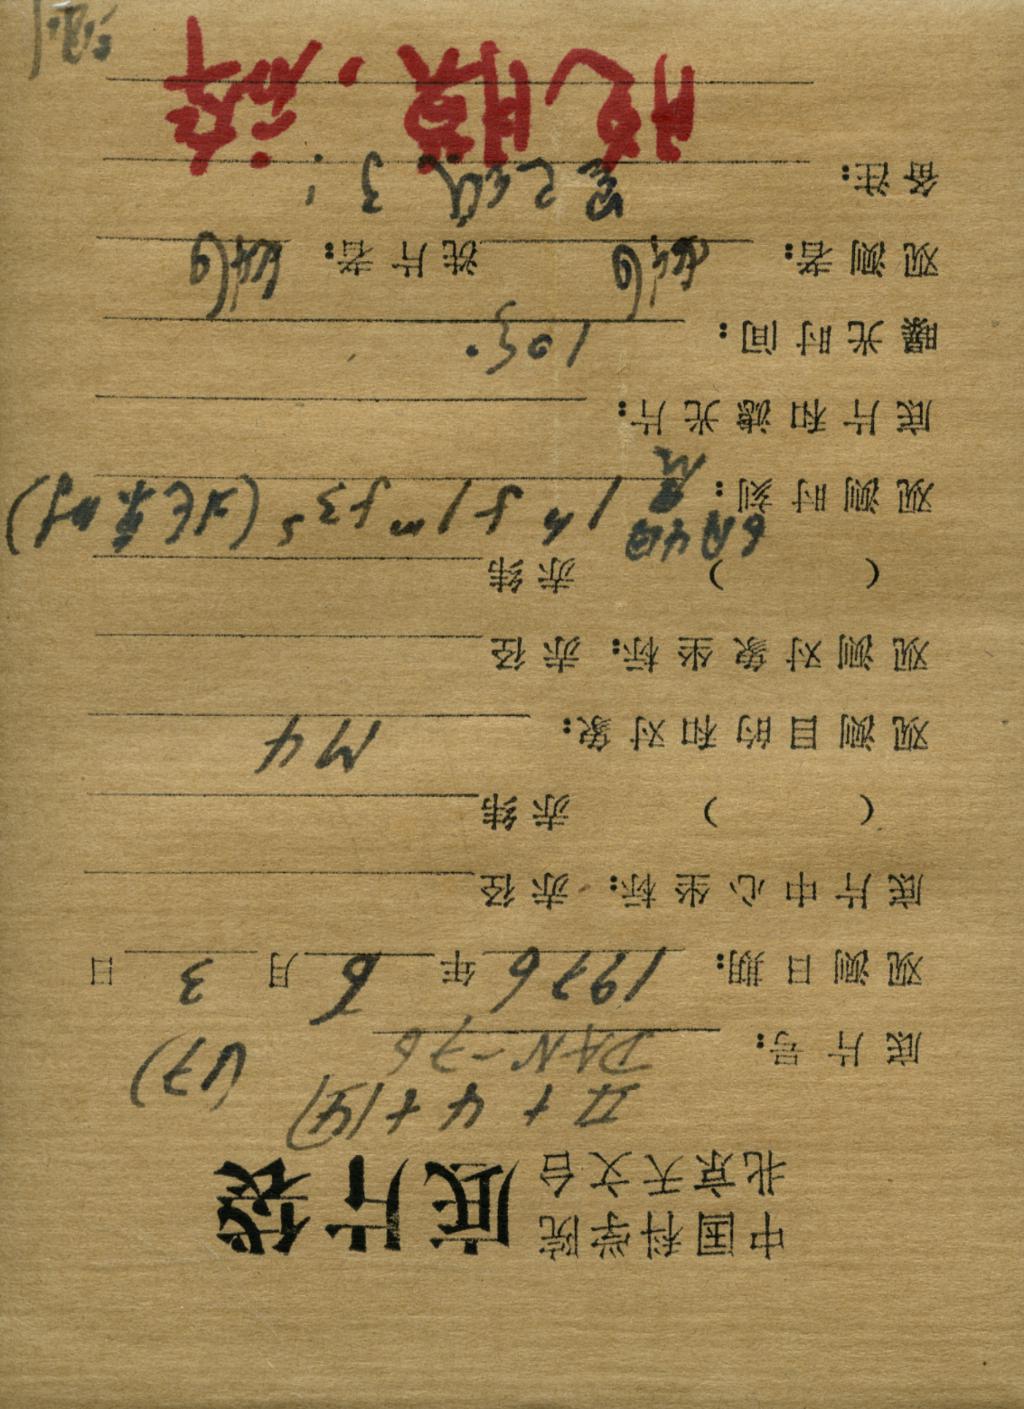 中国科学院
北京天文台 底片袋
II+4+14)
底片号: DAN-76 (U7)
观测日期: 1976 年 6 月 3 日
底片中心坐标: 赤径
( ) 赤纬
观测目的和对象: M4
观测对象坐标: 赤径
( ) 赤纬
6月4日
观测时刻: 晨 1h51m53s (北京时)
底片和滤光片:
曝光时间: 10s.
观测者: 洗片者:
备注:
脱膜,碎